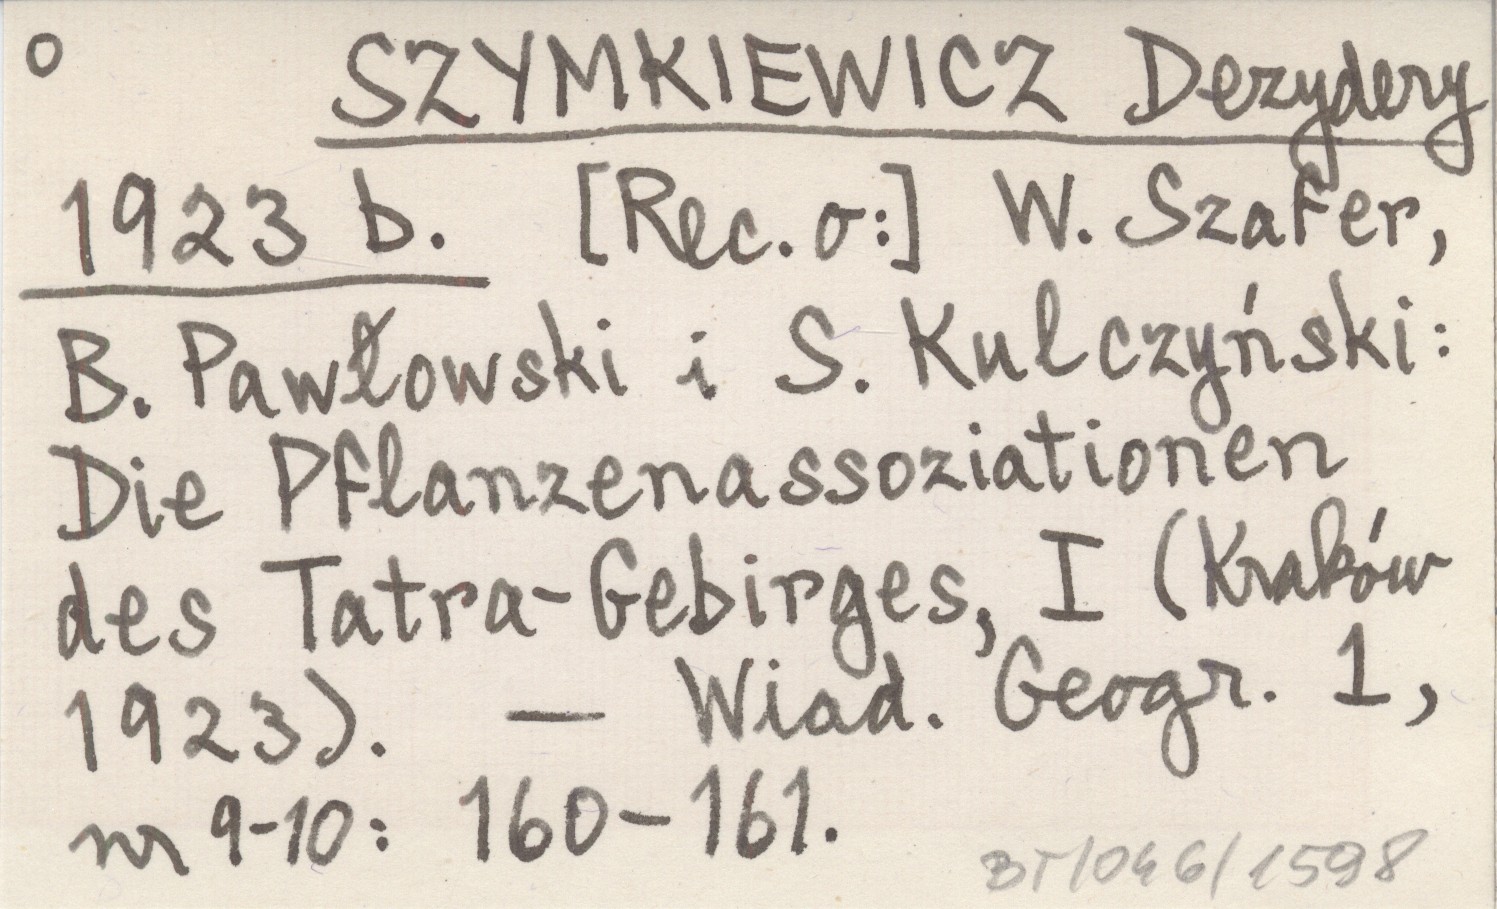 o SZYMKIEWICZ Dezydery
1923 b. [Rec. o:] W. Szafer,
B. Pawłowski i S. Kulczyński:
Die Pflanzenassoziationen
des Tatra-Gebirges, I (Kraków
1923). — Wiad. Geogr. 1,
nr 9-10: 160-161.
BT/046/1598